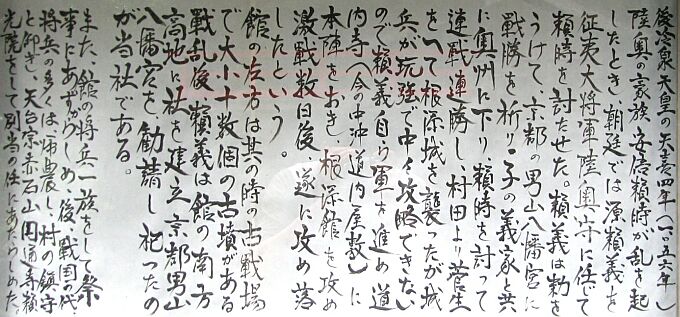 後冷泉天皇の天喜四年（一〇五六年）
陸奥の豪族、安倍頼時が乱を起
したとき、朝廷では源頼義を
征夷大将軍陸奥守に任じて
頼時を討たせた。頼義は勅を
うけて、京都の男山八幡宮に
戦勝を祈り、子の義家と共
に奥州に下り、頼時を討って
連戦連勝し、村田より菅生
をへて根添城を襲ったが城
兵が頑強で中々攻略できない
ので頼義自ら軍を進め道
内寺（今の中沖道内屋敷）に
本陣をおき、根添館を攻め
激戦数日後、遂に攻め落
したという。
館の左右は其の時の古戦場
で大小十数個の古墳がある
戦乱後、頼義は館の南方
高地に社を建立、京都男山
八幡宮を、勧請し祀ったの
が当社である。
また、館の将兵一族をして祭
事にあずからしめ、後、戦国の代、
将兵の多くは、帰農し、村の鎮守
と仰ぎ、天台宗赤石山円通寺頼
光院をして別当の任にあたらしめた。